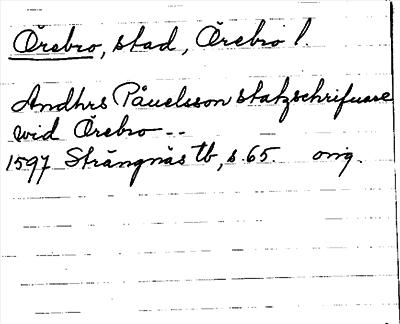 Örebro, stad, Örebro l.
Andhrs Påuelsson statzschrifuare
wid Örebro --
1597 Strängnäs tb, s. 65. orig.